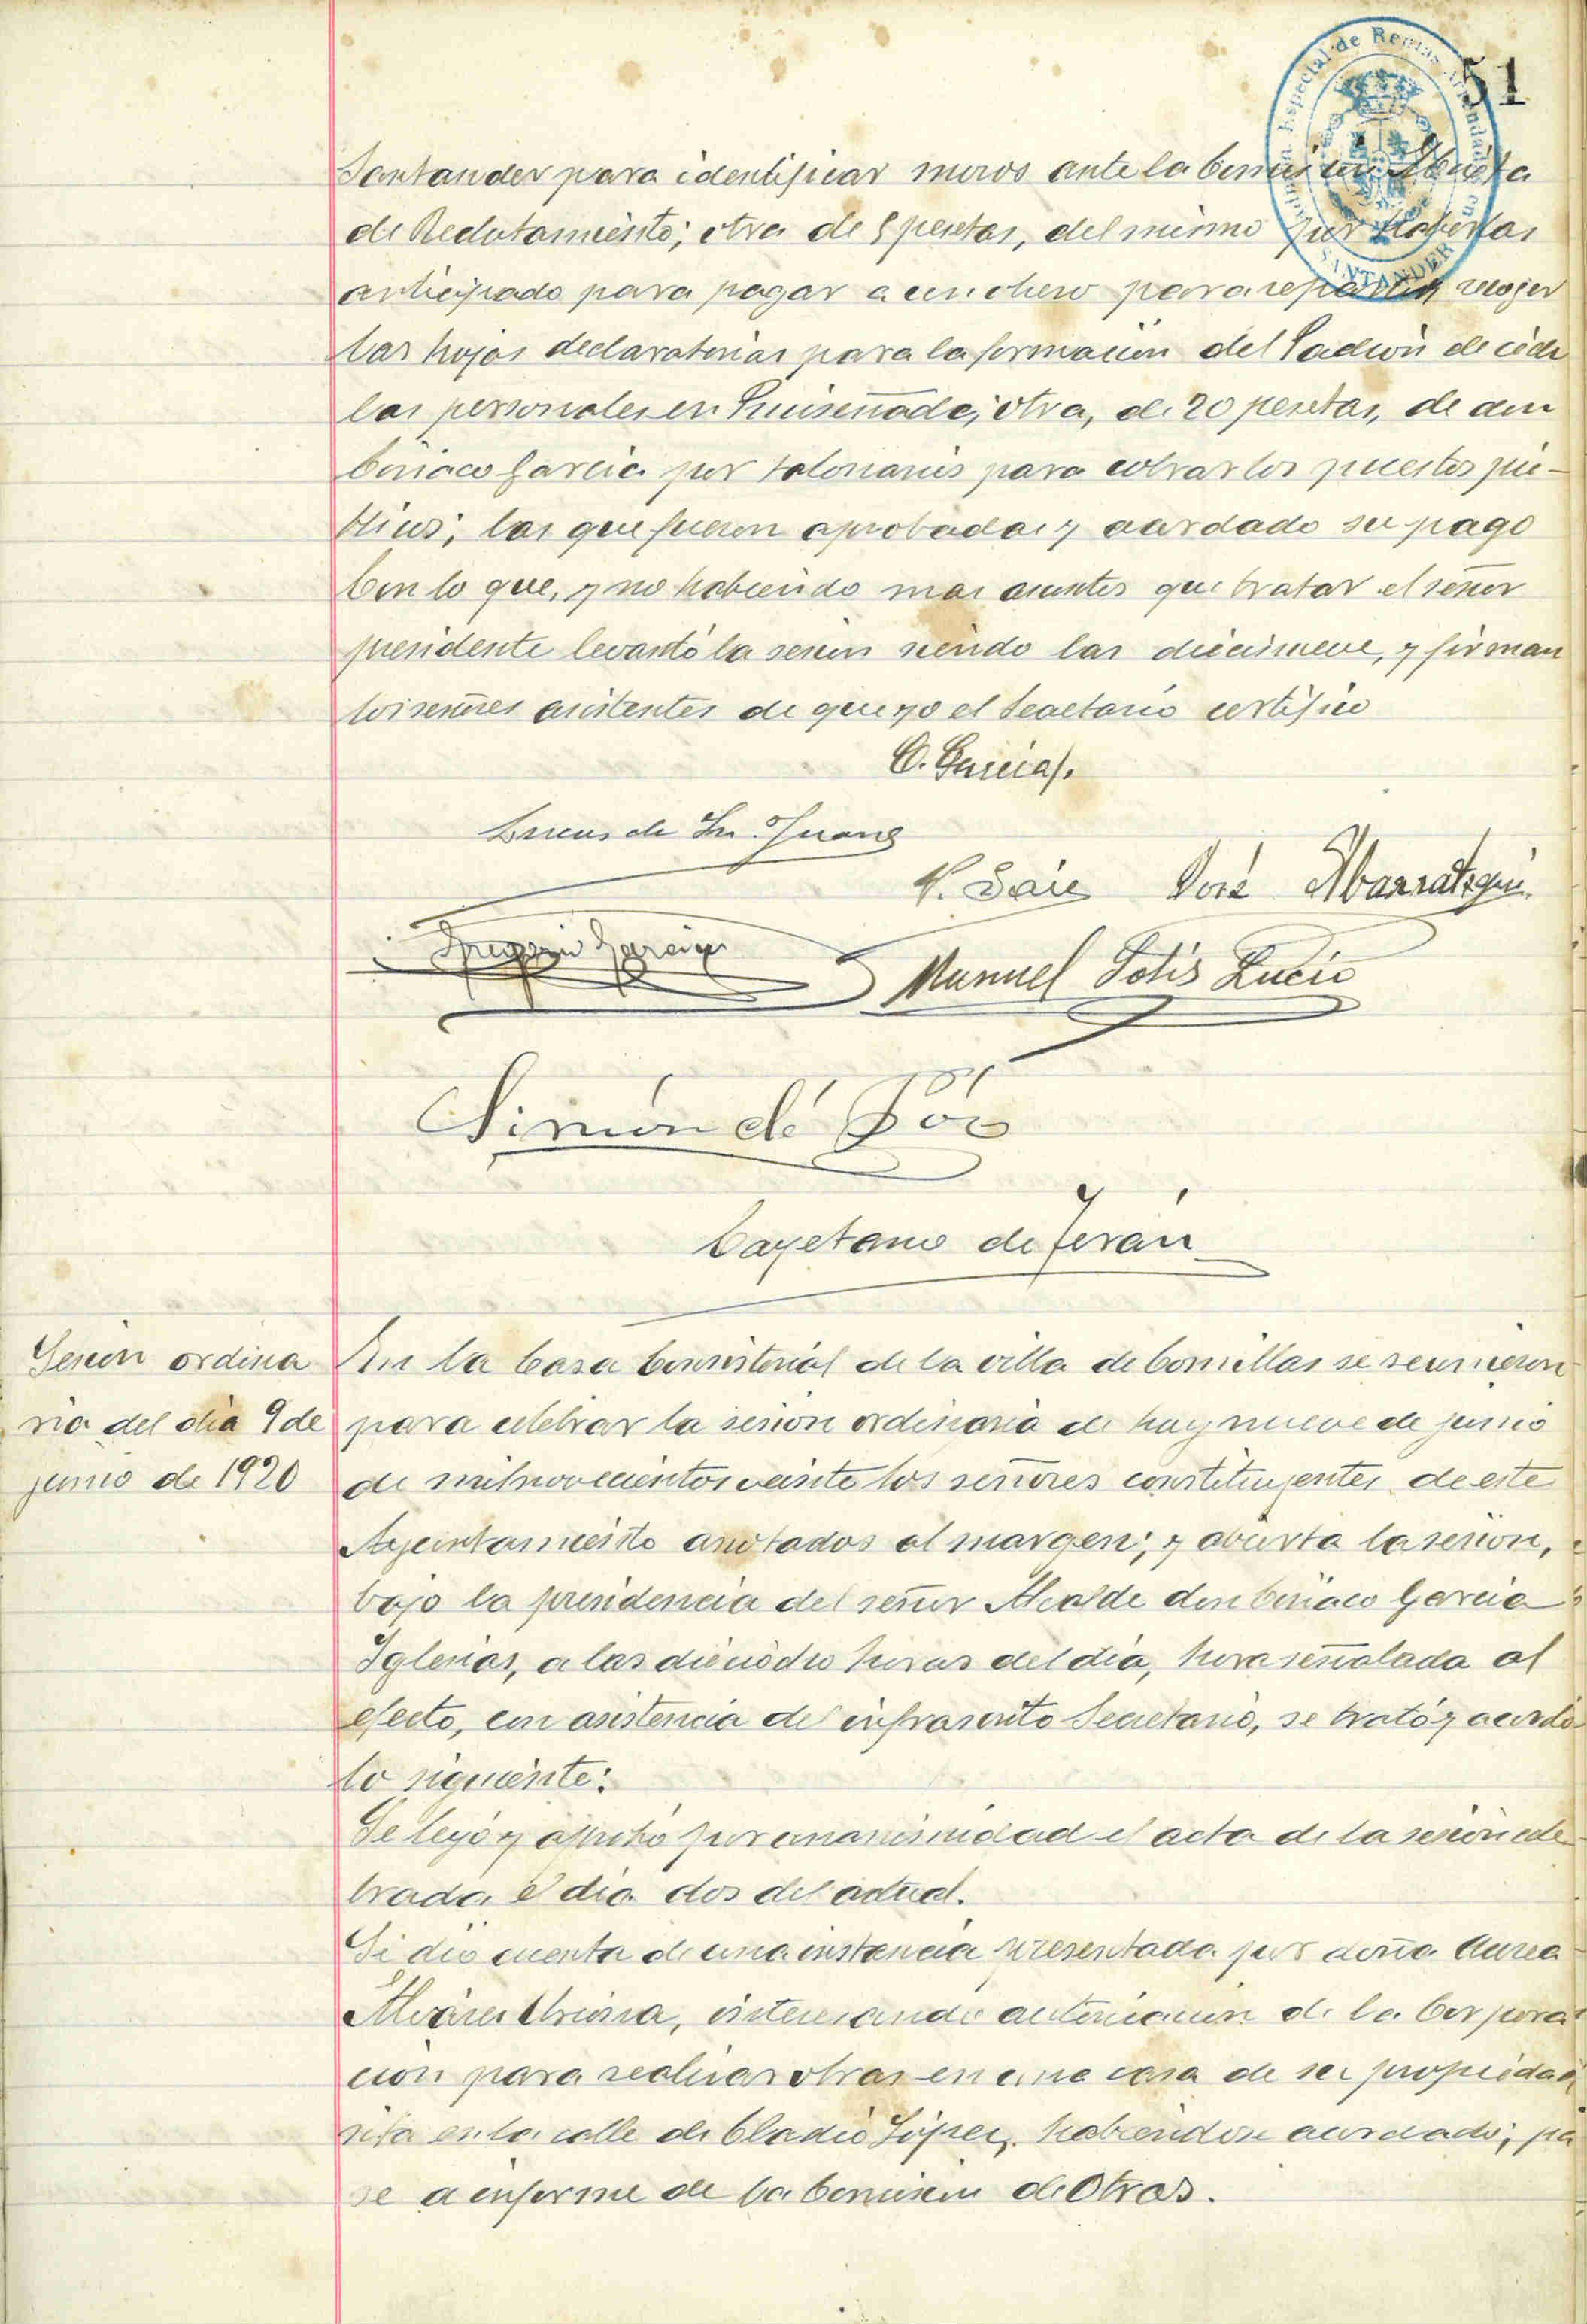 51
Especial de Rentas Arrendadas en
SANTANDER
Santander para identificar mozos ante la Comisión Mixta
de Reclutamiento; otra de 8 pesetas, del mismo por haberlas
anticipado para pagar a un chero para repartir y recojer
las hojas declaratorias para la formación del Padrón de cédu
las personales en Ruiseñada; otra, de 20 pesetas, de don
Ciriaco García por talonarios para cobrar los puestos pú-
blicos; las que fueron aprobadas y acordado su pago
Con lo que, y no habiendo mas asuntos que tratar el señor
presidente levantó la sesión siendo las diecinueve, y firman
los señores asistentes de que yo el Secretario certifico
C. García
Lucas de Sn. Juan
V. Saiz José Abarrategui
Gregorio García
Manuel Solis Lucio
Simón de Pôo
Cayetano de Terán
Sesión ordina
ria del dia 9 de
junio de 1920
En la Casa Consistorial de la villa de Comillas se reunieron
para celebrar la sesión ordinaria de hoy nueve de junio
de mil novecientos veinte los señores constituyentes de este
Ayuntamiento anotados al margen; y abierta la sesion,
bajo la presidencia del señor Alcalde don Ciriaco García
Iglesias, a las dieciocho horas del dia, hora señalada al
efecto, con asistencia del infrascrito Secretario, se trató y acordó
lo siguiente:
Se leyó y aprobó por unanimidad el acta de la sesión cele
brada el dia dos del actual.
Se dio cuenta de una instancia presentada por doña Aurea
Alvárez, interesando autorización de la Corpora
ción para realizar obras en una casa de su propiedad
sita en la calle de Cladio López, habiendose acordado, pa
se a informe de la Comisión de Obras.